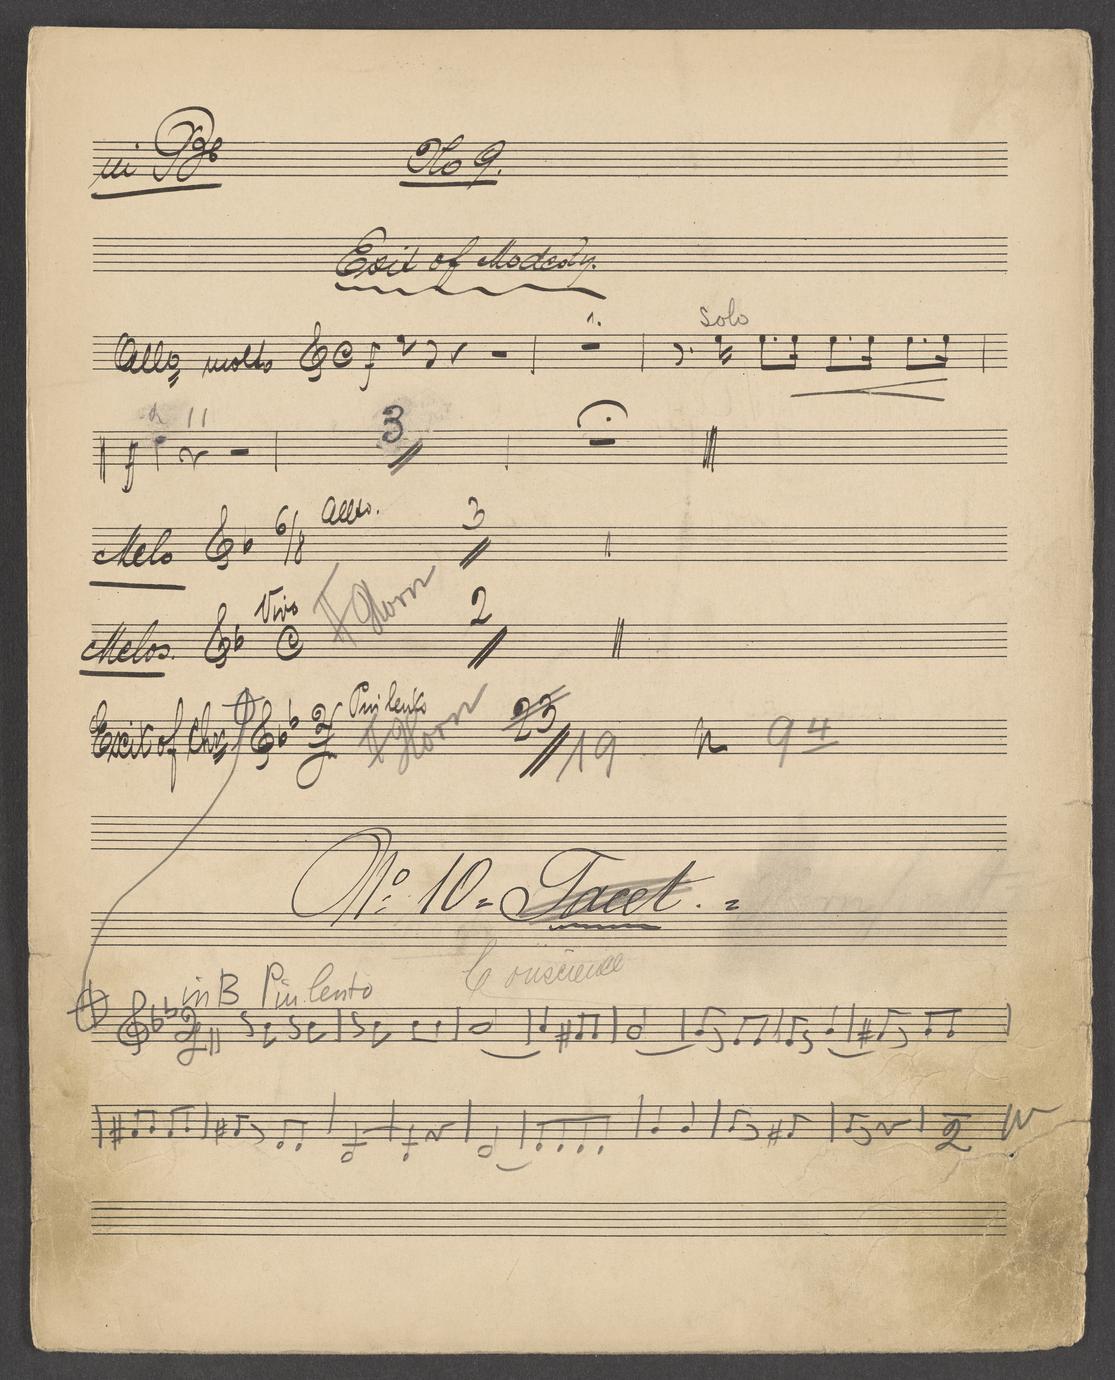 in B No 9.
Exit of Modesty.
Solo
Allo molto
3
Allto.
3
Melo 6/8
Vivo
Horn
2
Melos.
Piu lento
Exit of Chr. Horn 23 19 94
No. 10 = Tacet. =
Conscience
in B Piu lento
2